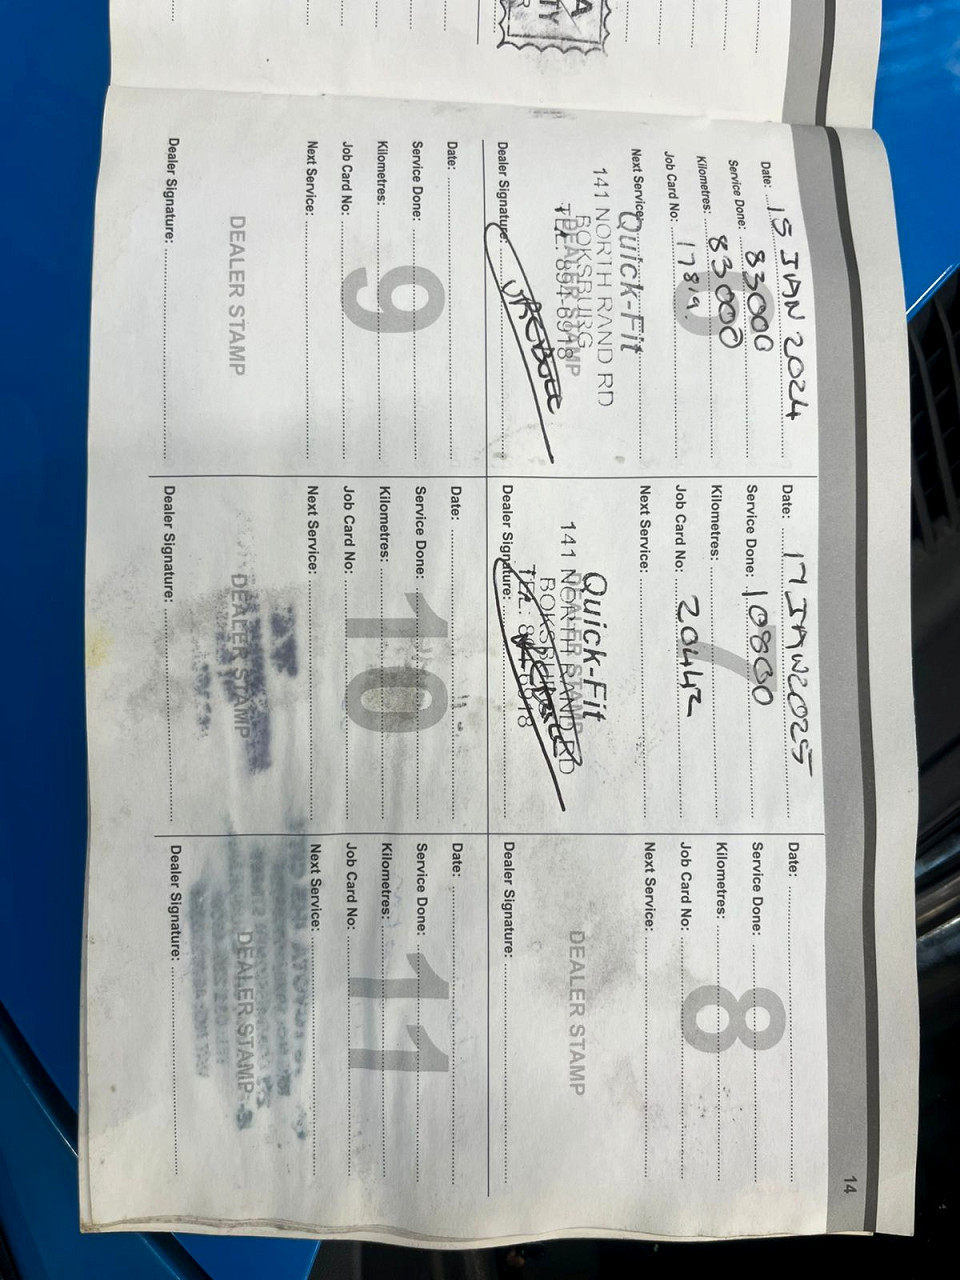 A
TY
R
Date: 15 JAN 2024
Service Done: 83000
Kilometres: 83000
Job Card No: 17819
Next Service:
6
Quick-Fit
141 NORTH RAND RD
BOKSBURG
TEL: 894-6918
DEALER STAMP
Dealer Signature:
Date: 17 JAN 2025
Service Done: 108000
Kilometres:
Job Card No: 20442
Next Service:
7
Quick-Fit
DEALER STAMP
141 NORTH RAND RD
BOKSBURG
TEL: 894-6918
Dealer Signature:
Date:
Service Done:
Kilometres:
Job Card No:
Next Service:
8
DEALER STAMP
Dealer Signature:
Date:
Service Done:
Kilometres:
Job Card No:
Next Service:
9
DEALER STAMP
Dealer Signature:
Date:
Service Done:
Kilometres:
Job Card No:
Next Service:
10
DEALER STAMP
Dealer Signature:
Date:
Service Done:
Kilometres:
Job Card No:
Next Service:
11
DEALER STAMP
Dealer Signature:
14